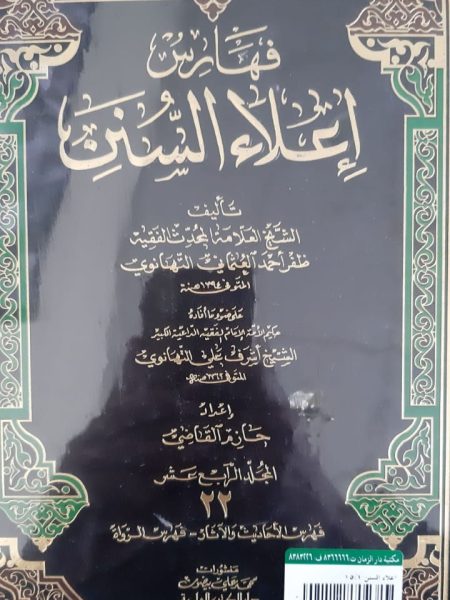 فهارس
إعلاء السنن
تأليف
الشيخ العلامة المحدث الفقيه
ظفر أحمد العثماني التهانوي
المتوفى ١٣٩٤ سنة
على ضوء ما أفاده
حكيم الأمة الإمام الفقيه الداعية الكبير
الشيخ أشرف علي التهانوي
المتوفى ١٣٦٢
إعداد
حازم القاضي
المجلد الرابع عشر
٢٢
فهرس الأحاديث والآثار - فهرس الرواة
منشورات
محمد علي بيضون
دار الكتب العلمية
مكتبة دار الزمان ت ٨٣٦٦٦٦٦ ف ٨٣٨٣٢٢٦
اعلاء السنن